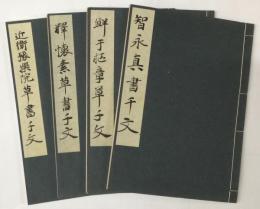 智永真書千文
鮮于枢章草千文
釋懐素草書千文
近衛豫樂院草書千文